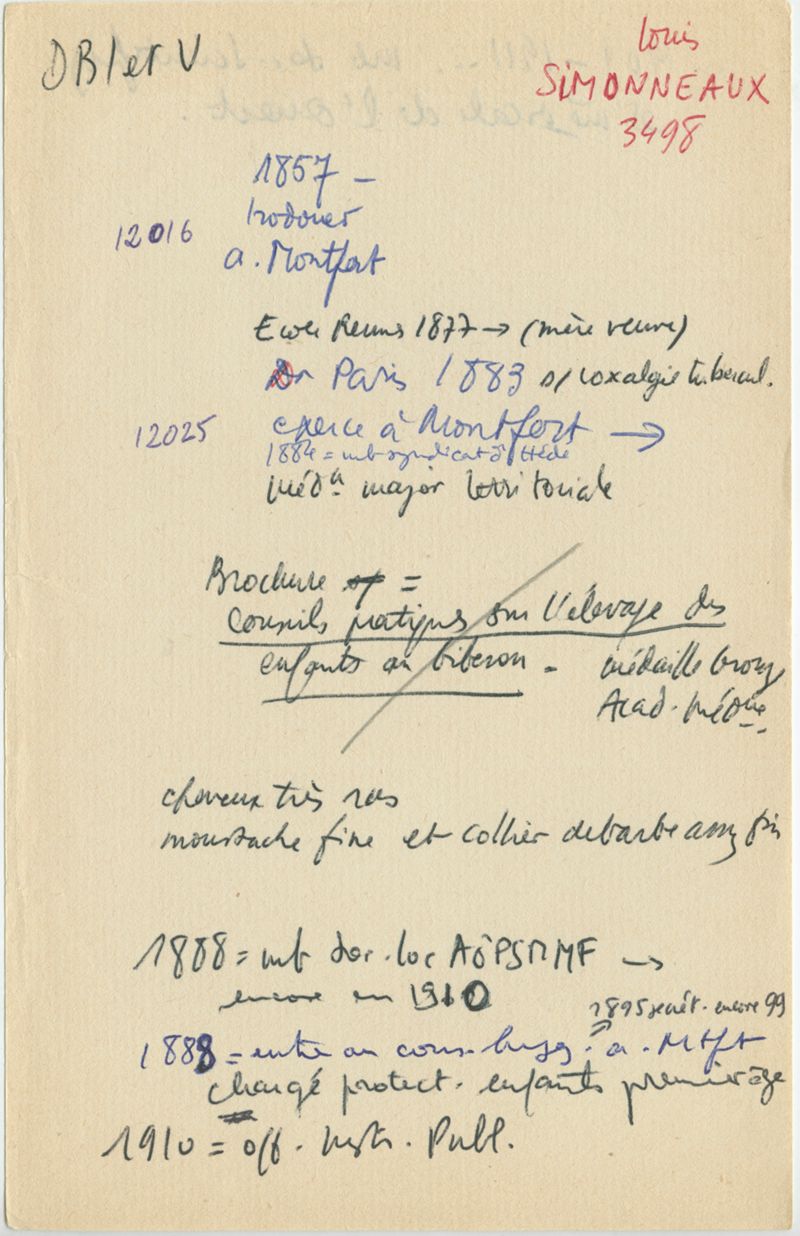 DB1 et V
Louis
SIMONNEAUX
3498
1857 –
Irodouer
12016
a. Montfort
Ecole Rennes 1877 → (mère veuve)
Dr Paris 1883 s/ coxalgie tubercul.
12025
exerce à Montfort →
1884 = mb syndicat Hédé
Médn major territoriale
Brochure =
Conseils pratiques sur l'élevage des
enfants au biberon – médaille bronze
Acad. Médne
cheveux très ras
moustache fine et collier de barbe assez fin
1888 = mb loc →
encore en 1910
1895 secrét. encore 99
1888 = entre au cons. hyg. a. Mtft
chargé protect. enfants premier âge
1910 = off. Instr. Publ.